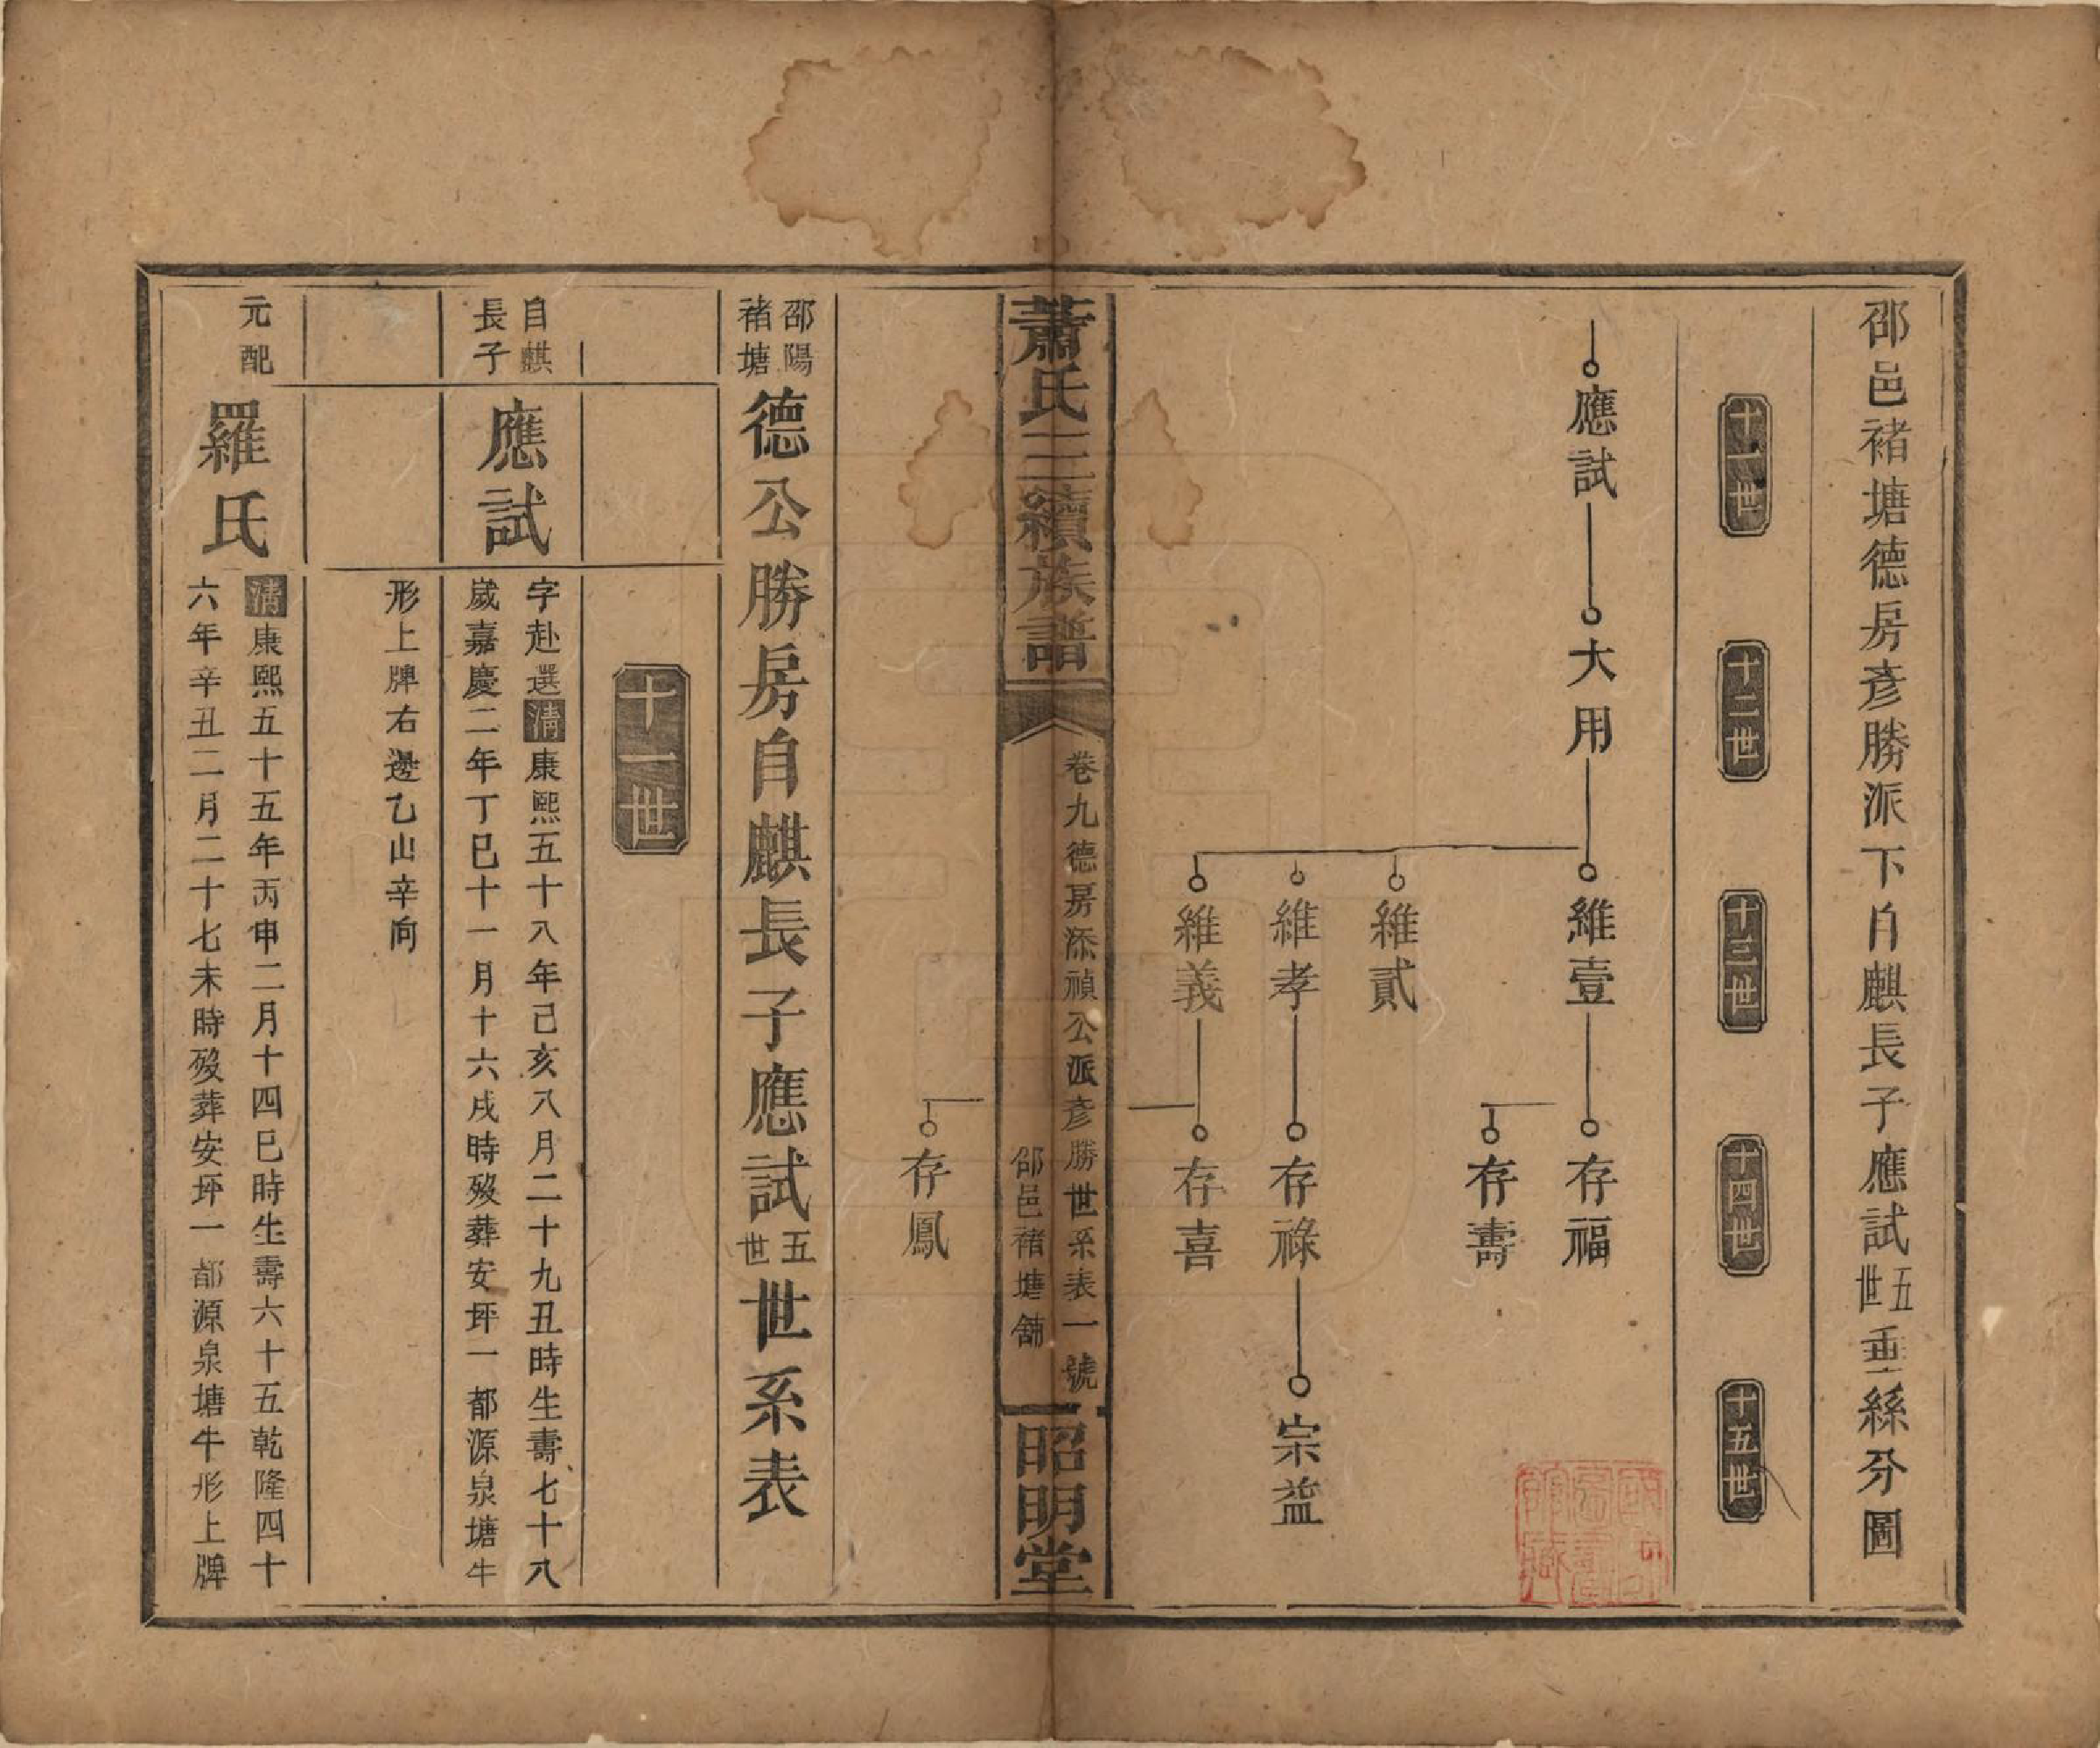 邵邑褚塘德房彥勝派下自麒長子應試五世垂絲分圖
十一世
十二世
十三世
十四世
十五世
應試
大用
維壹
維貳
維孝
維義
存福
存壽
存祿
存喜
宗益
存鳳
蕭氏三續族譜
卷九德房添禎公派彥勝世系表一號
邵邑褚塘舖
昭明堂
邵陽褚塘
德公勝房自麒長子應試五世世系表
十一世
自麒長子
應試
字赴選清康熙五十八年己亥八月二十九丑時生壽七十八
歲嘉慶二年丁巳十一月十六戌時歿葬安坪一都源泉塘牛
形上牌右邊乙山辛向
元配
羅氏
清康熙五十五年丙申二月十四巳時生壽六十五乾隆四十
六年辛丑二月二十七未時歿葬安坪一都源泉塘牛形上牌